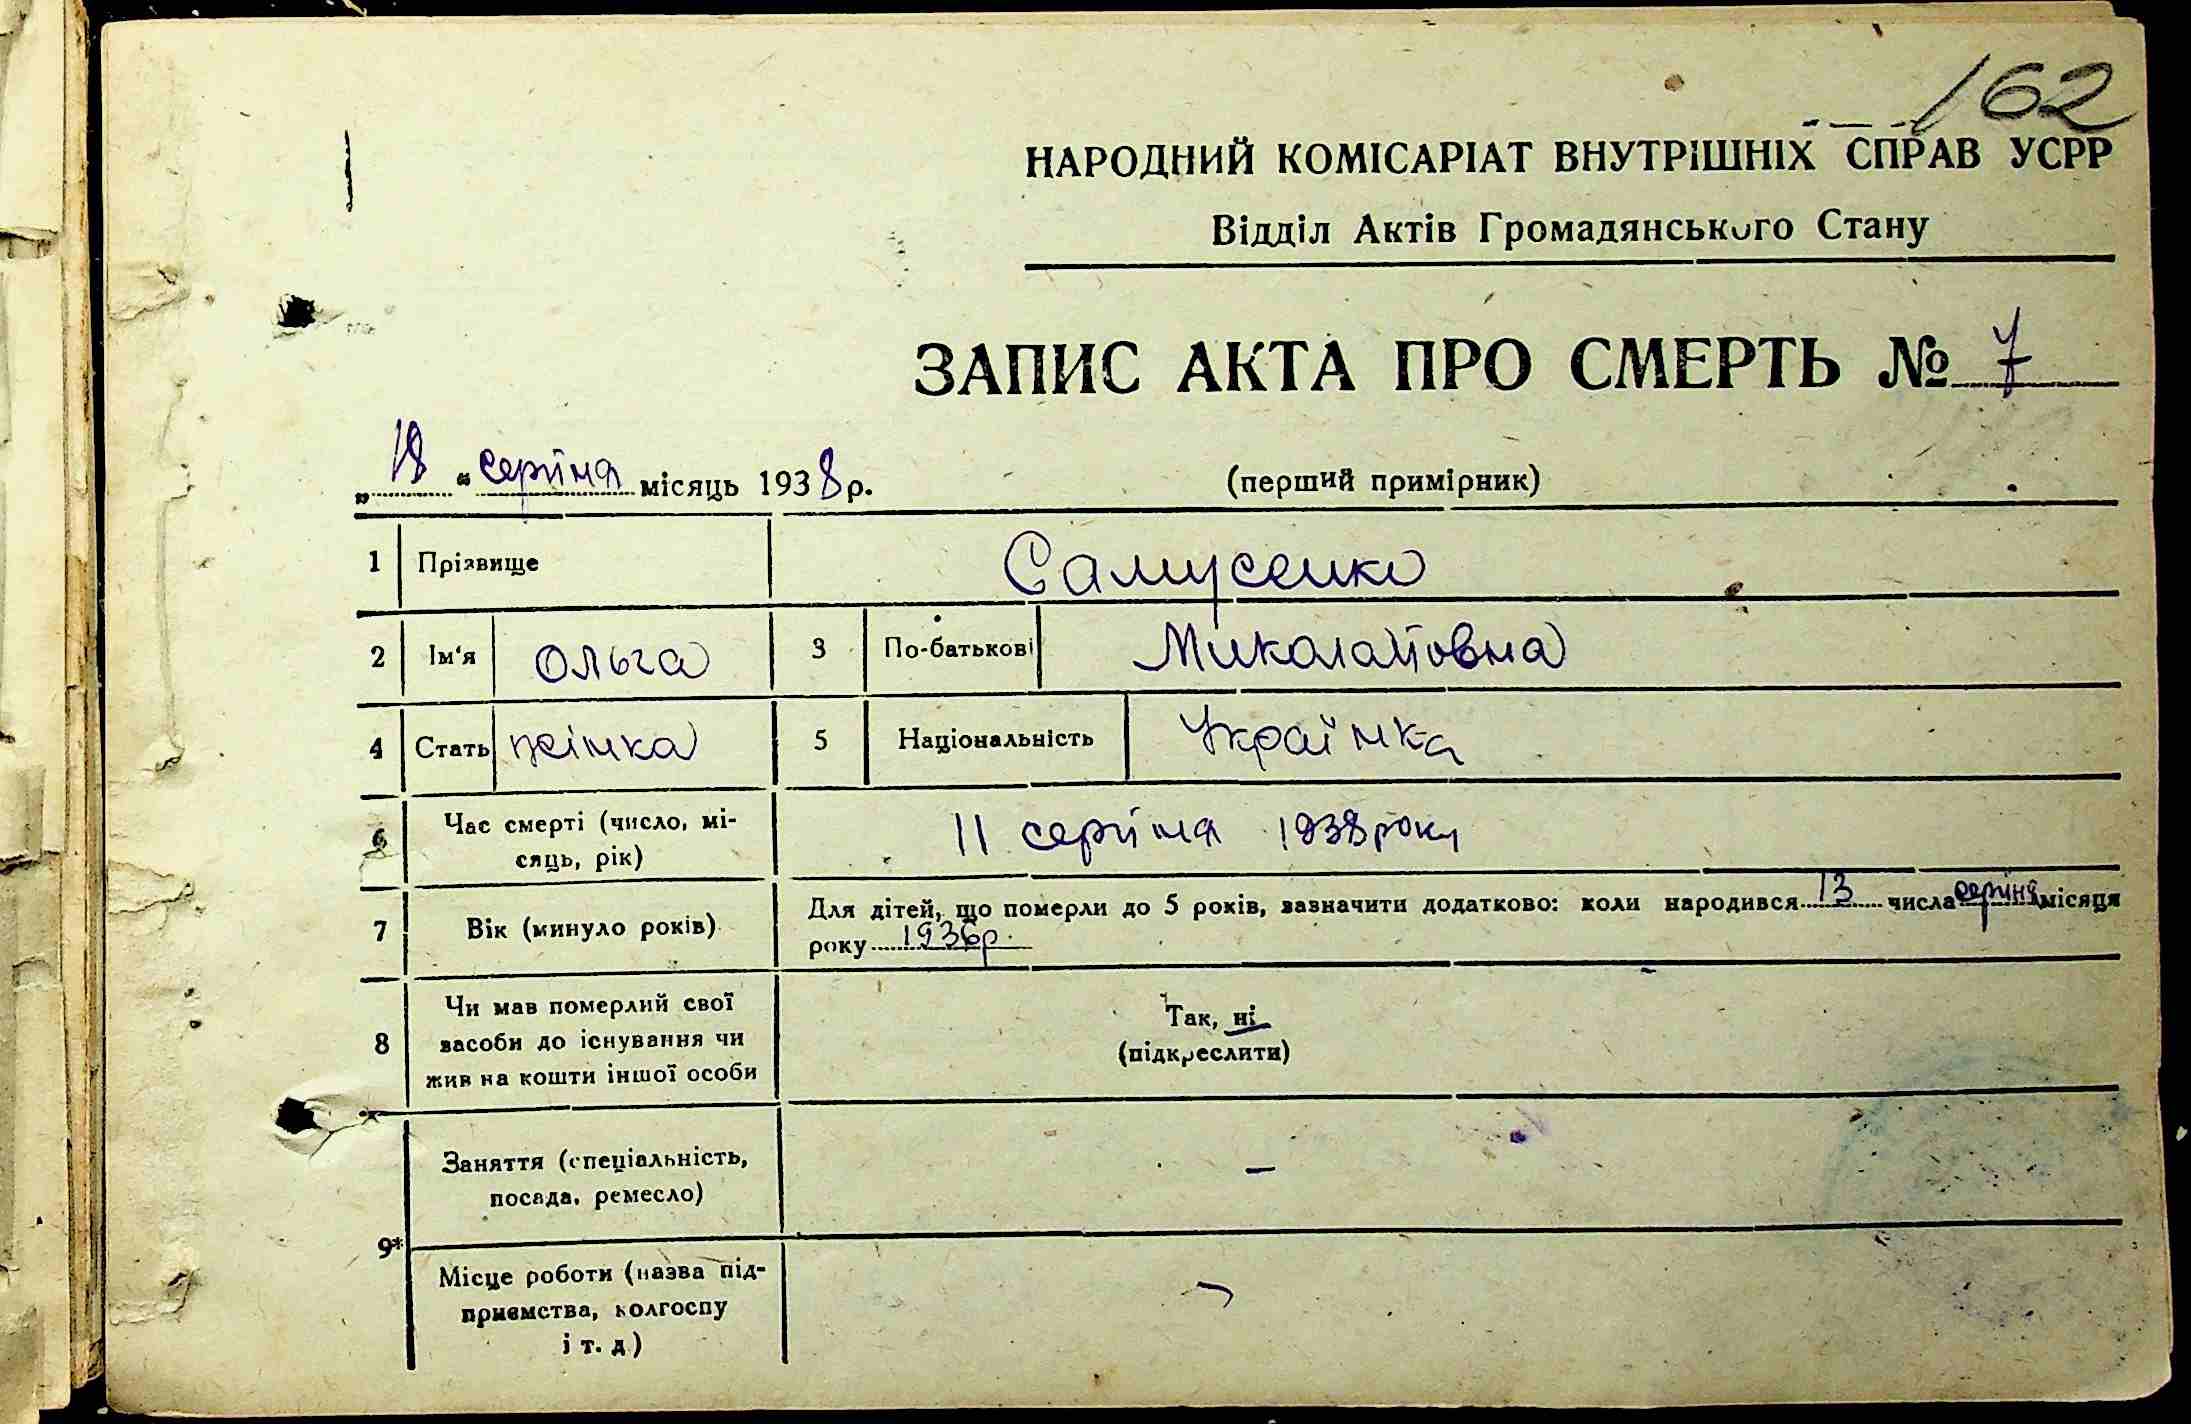 162
НАРОДНИЙ КОМІСАРІАТ ВНУТРІШНІХ СПРАВ УСРР
Відділ Актів Громадянського Стану
ЗАПИС АКТА ПРО СМЕРТЬ № 7
„18“ серпіня місяць 1938 р.
(перший примірник)
1 Прізвище Самусенко
2 Ім'я Ольга 3 По-батькові Миколаївна
4 Стать жінка 5 Національність Українка
6 Час смерті (число, мі-
сяць, рік) 11 серпіня 1938 року
7 Вік (минуло років) Для дітей, що померли до 5 років, зазначити додатково: коли народився 13 числа серпіня місяця
року 1936р.
8 Чи мав померлий свої
засоби до існування чи
жив на кошти іншої особи
Так, ні
(підкреслити)
9* Заняття (спеціальність,
посада, ремесло) —
Місце роботи (назва під-
приємства, колгоспу
і т. д.) —